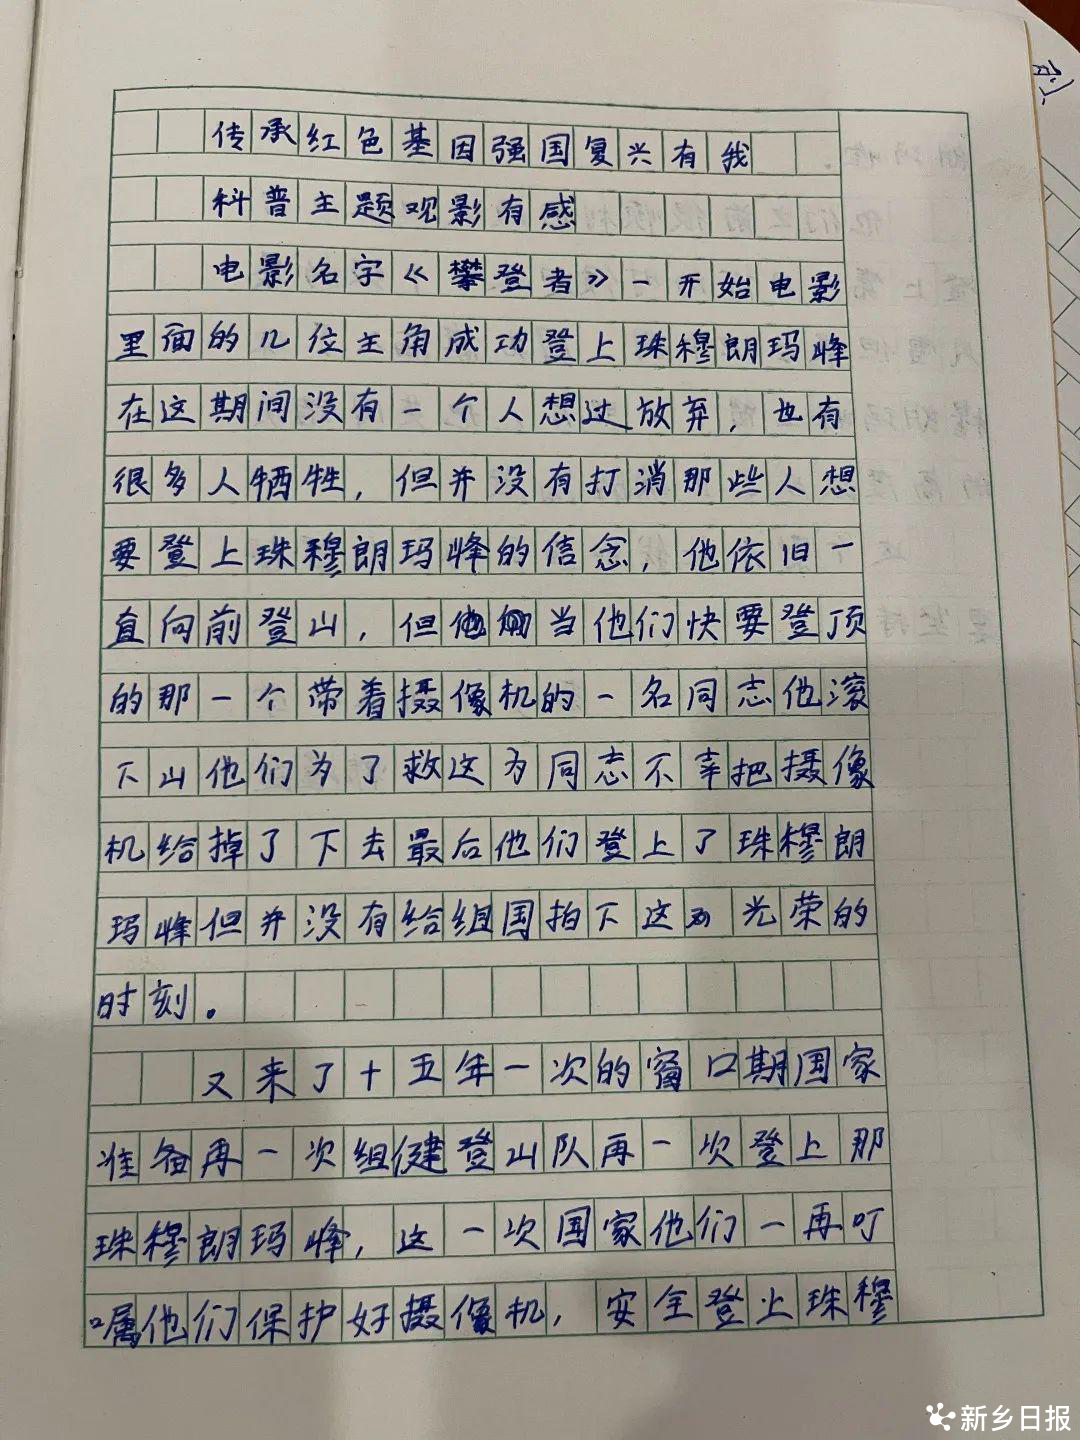 传承红色基因强国复兴有我
科普主题观影有感
电影名字《攀登者》一开始电影
里面的几位主角成功登上珠穆朗玛峰
在这期间没有一个人想过放弃,也有
很多人牺牲,但并没有打消那些人想
要登上珠穆朗玛峰的信念,他依旧一
直向前登山,但当他们快要登顶
的那一个带着摄像机的一名同志他滚
下山他们为了救这为同志不幸把摄像
机给掉了下去最后他们登上了珠穆朗
玛峰但并没有给组国拍下这光荣的
时刻。
又来了十五年一次的窗口期国家
准备再一次组健登山队再一次登上那
珠穆朗玛峰,这一次国家他们一再叮
嘱他们保护好摄像机,安全登上珠穆
新乡日报